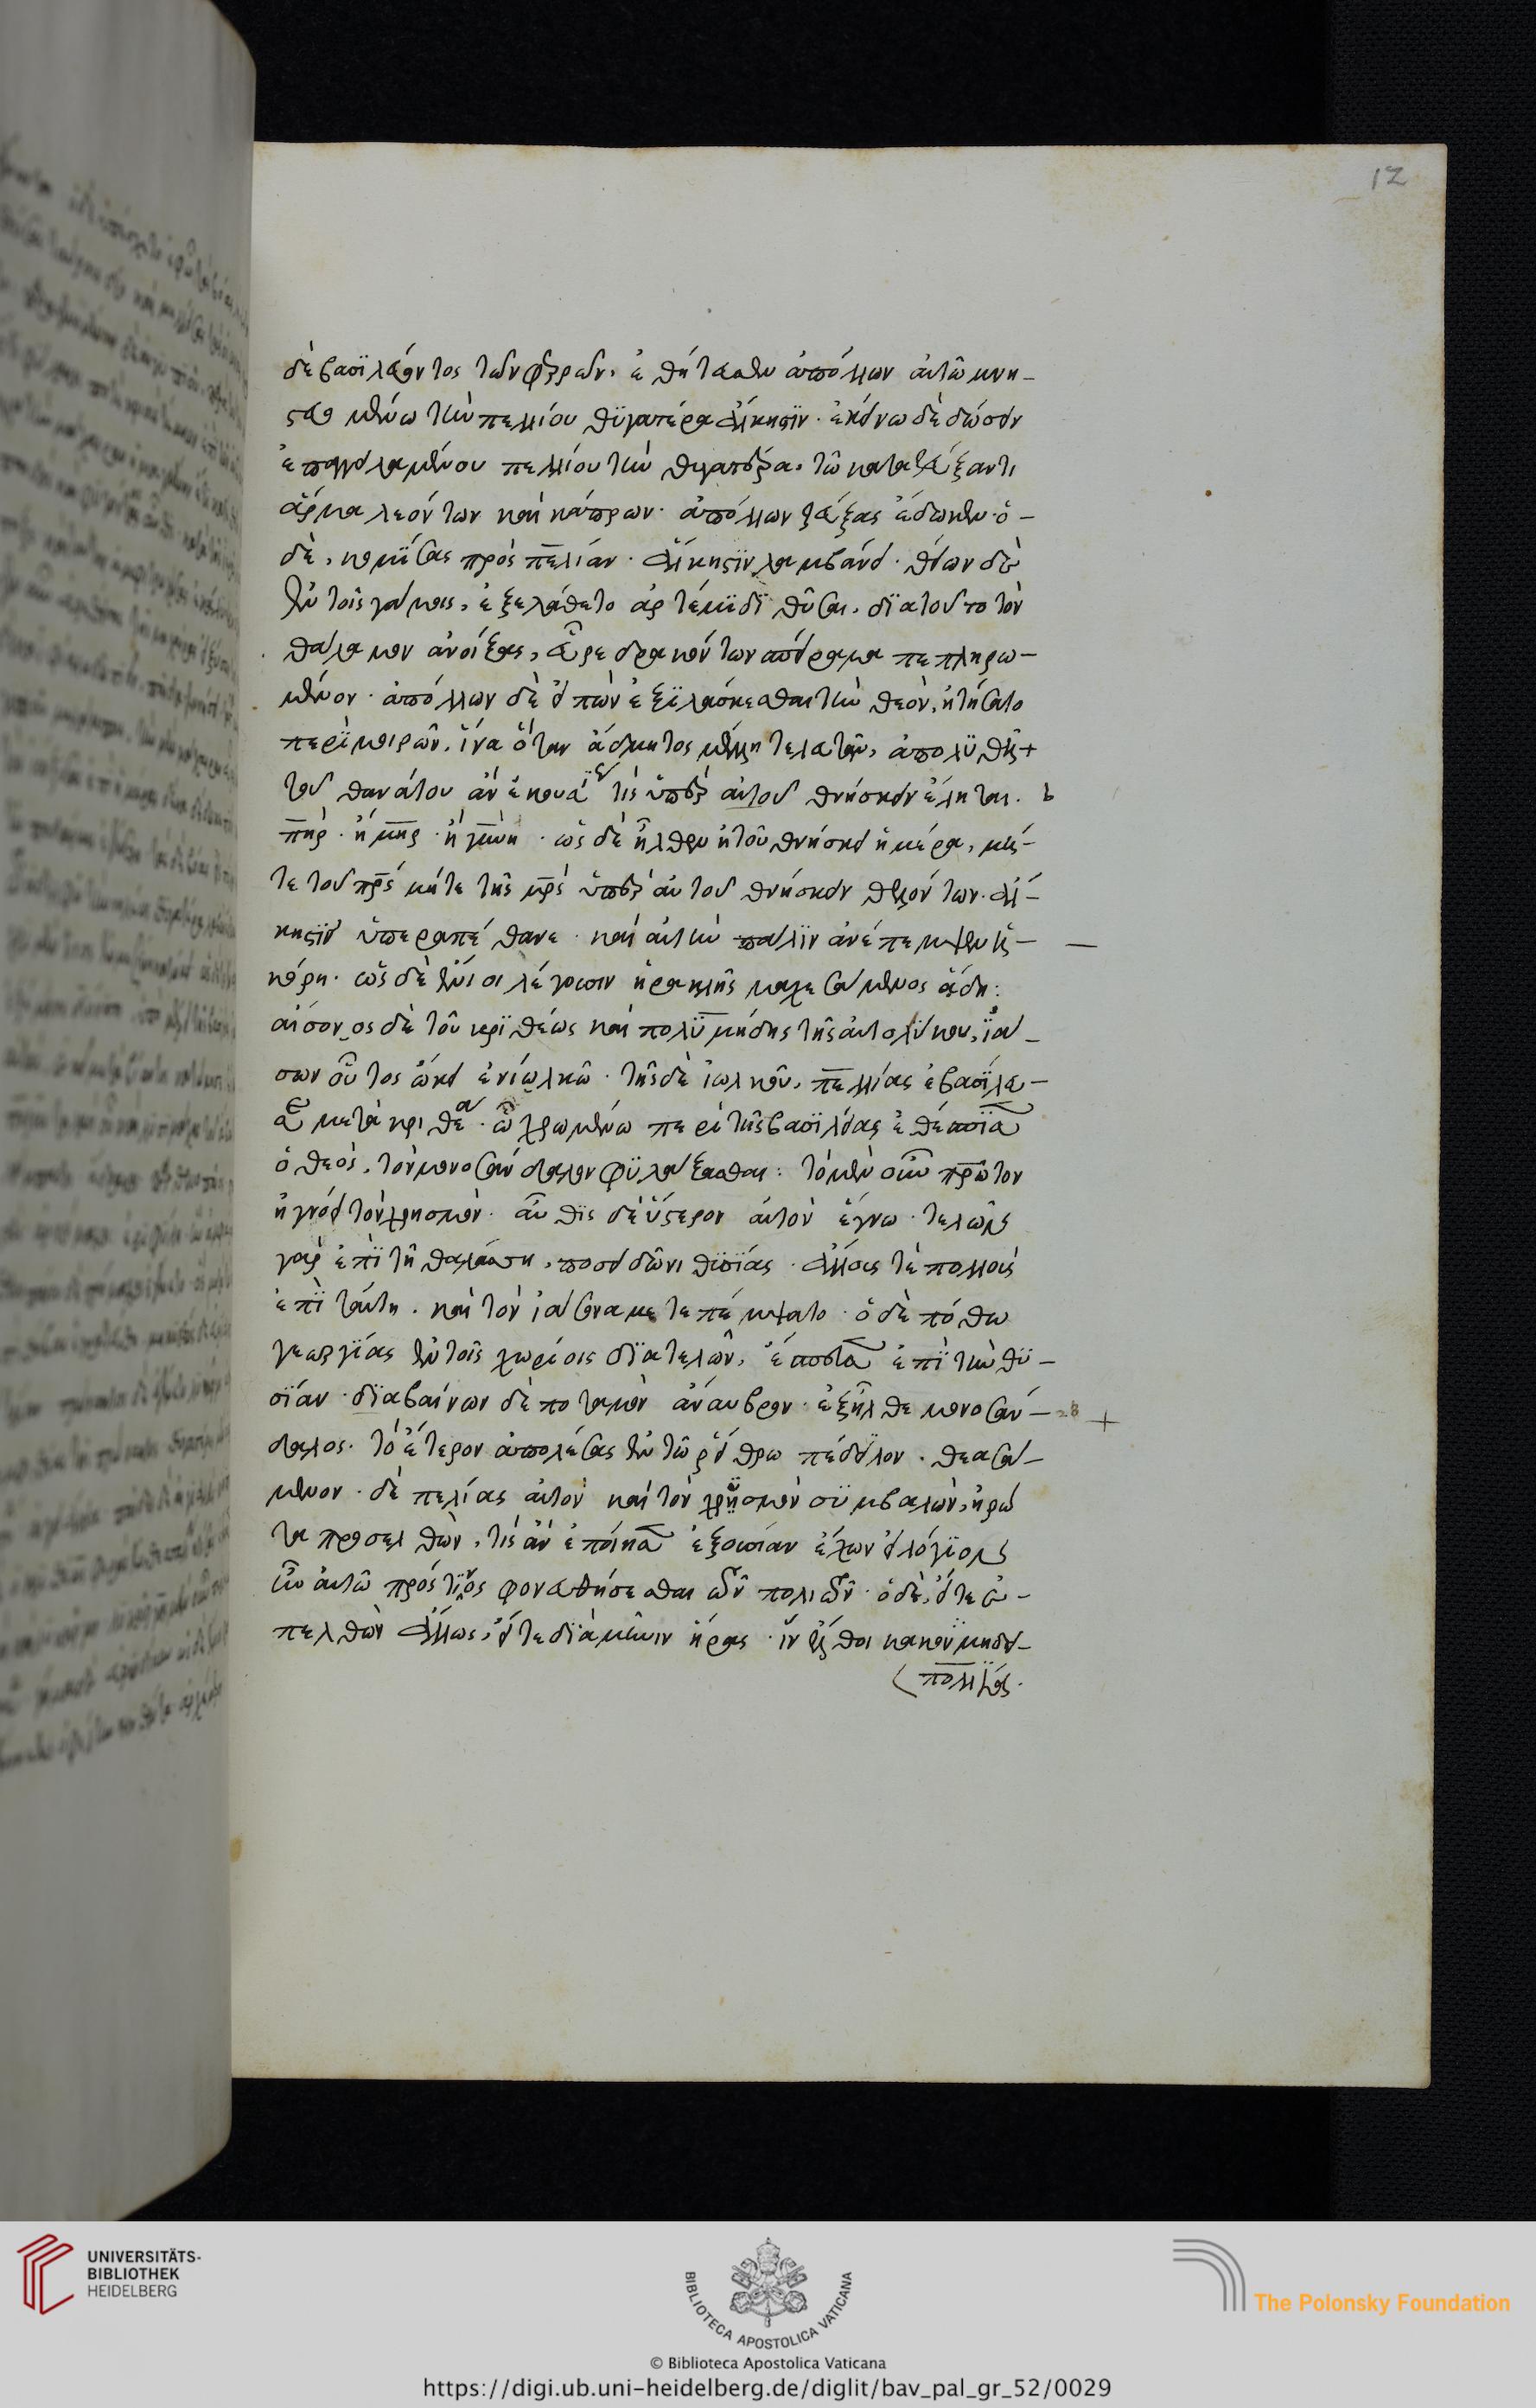 12
δὲ βασϊλεύοντος τῶν φερρῶν, ἐθήτευσεν ἀπόλλων αὐτῶ μνη-
στευομένω τὴν πελλίου θϋγατέρα ἄλκηστϊν· ἐκείνω δὲ δώσειν
ἐπαγγειλαμένου πελλίου τὴν θυγατέρα, τῶ καταζεύξαντι
ἅρμα λεόντων καὶ κάπρων· ἀπόλλων ζεύξας ἔδωκεν· ὁ-
δὲ, κομϊσας πρὸς πελίαν· ἄλκηστϊν λαμβάνει· θύων δὲ
ἐν τοῖς γάμοις, ἐξελάθετο ἀρτέμϊδϊ θῦσαι, δϊατοῦτο τὸν
θάλαμον ἀνοίξας, εὗρε δρακόντων σπείραμα πεπληρω-
μένον· ἀπόλλων δὲ εἰπὼν ἐξϊλάσκεσθαι τὴν θεὸν, ἠτήσατο
περϊμοιρῶν, ἵνα ὅταν ἄδμητος μέλλη τελευτᾶν, ἀπολϋθῆ+
τοῦ θανάτου ἂν ἑκουσϊως τὶς ὑπὲρ αὐτοῦ θνήσκειν ἕληται.
πηρ· ἢ μηρ· ἢ γυνὴ· ὡς δὲ ἦλθεν ἡ τοῦ θνήσκειν ἡμέρα, μή-
τε τοῦ πρς μήτε τῆς μρς ὑπὲρ αὐτοῦ θνήσκειν θελόντων· ἄλ-
κηστϊς ὑπεραπέθανε· καὶ αὐτὴν πάλϊν ἀνέπεμψεν ἡ- —
κόρη· ὡς δὲ ἔνϊοι λέγουσιν ἡρακλῆς μαχεσάμενος ἅδη:
αἴσονος δὲ τοῦ κρϊθέως καὶ πολϋμήδης τῆς αὐτολϋκου, ϊά-
σων οὗτος ὤκει ἐν ἰωλκῶ· τῆς δὲ ἰωλκοῦ, πελλίας ἐβασϊλευ-
σε μετὰ κριθέα· ὧ χρωμένω περὶ τῆς βασϊλείας ἐθέσπϊσεν
ὁ θεὸς, τὸν μονοσάνδαλον φϋλάξασθαι: τὸ μὲν οὖν πρῶτον
ἠγνόει τὸν χρησμὸν· αὖθϊς δὲ ὕστερον αὐτὸν ἔγνω· τελῶν
γὰρ ἐπϊ τῆ θαλάσση, ποσειδῶνι θϋσϊας· ἄλλους τὲ πολλοὺς
ἐπϊ ταύτη· καὶ τὸν ἰάσονα μετεπέμψατο· ὁ δὲ πόθω
γεωργϊας ἐν τοῖς χωρίοις δϊατελῶν, ἔσπευσεν ἐπϊ τὴν θϋ-
σϊαν· δϊαβαίνων δὲ ποταμὸν ἄναυβρον· ἐξῆλθε μονοσάν- +
δαλος· τὸ ἕτερον ἀπολέσας ἐν τῶ ῥείθρω πέδϊλον· θεασά-
μενον· δὲ πελίας αὐτὸν καὶ τὸν χρησμὸν σϋμβαλὼν, ἠρώ
τα προσελθὼν, τὶ ἂν ἐποίησεν ἐξουσίαν ἔχων εἰ λόγϊον
ἦν αὐτῶ πρός τϊνος φονευθήσεσθαι τῶν πολιτῶν· ὁ δὲ, εἴτε ἐ-
πελθὸν ἄλλως, εἴτε δϊὰ μῆνιν ἥρας· ἵν ἔλθοι κακὸν μηδεί-
πολλϊᾳ·
UNIVERSITÄTS-
BIBLIOTHEK
HEIDELBERG
BIBLIOTECA APOSTOLICA VATICANA
The Polonsky Foundation
© Biblioteca Apostolica Vaticana
https://digi.ub.uni-heidelberg.de/diglit/bav_pal_gr_52/0029